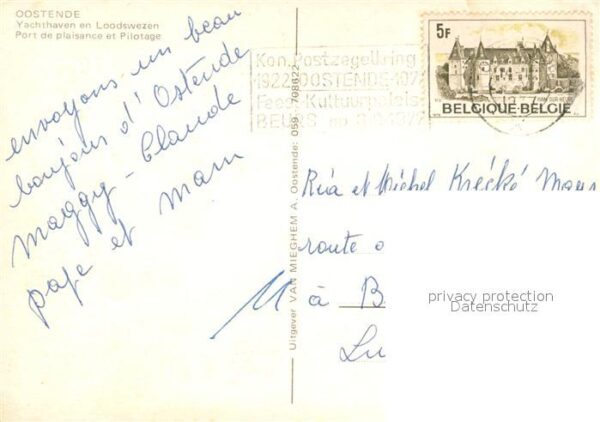 OOSTENDE
Yachthaven en Loodswezen
Port de plaisance et Pilotage
envoyons un beau
bonjour d'Ostende
Maggy - Claude
pape et mam
Uitgever VAN MIEGHEM A. Oostende: 059 / 708622
Kon. Postzegelkring
1922 OOSTENDE 197
Feest- Kultuurpaleis
BEURS 8-9-1977
5F
BELGIQUE·BELGIË
Ria et Michel Krecké
route
à B
Lu
privacy protection
Datenschutz